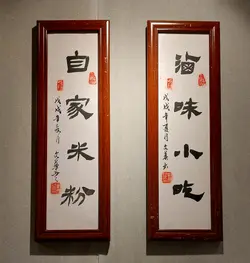 自家米粉
戊戌年夏月
滷味小吃
戊戌年夏月